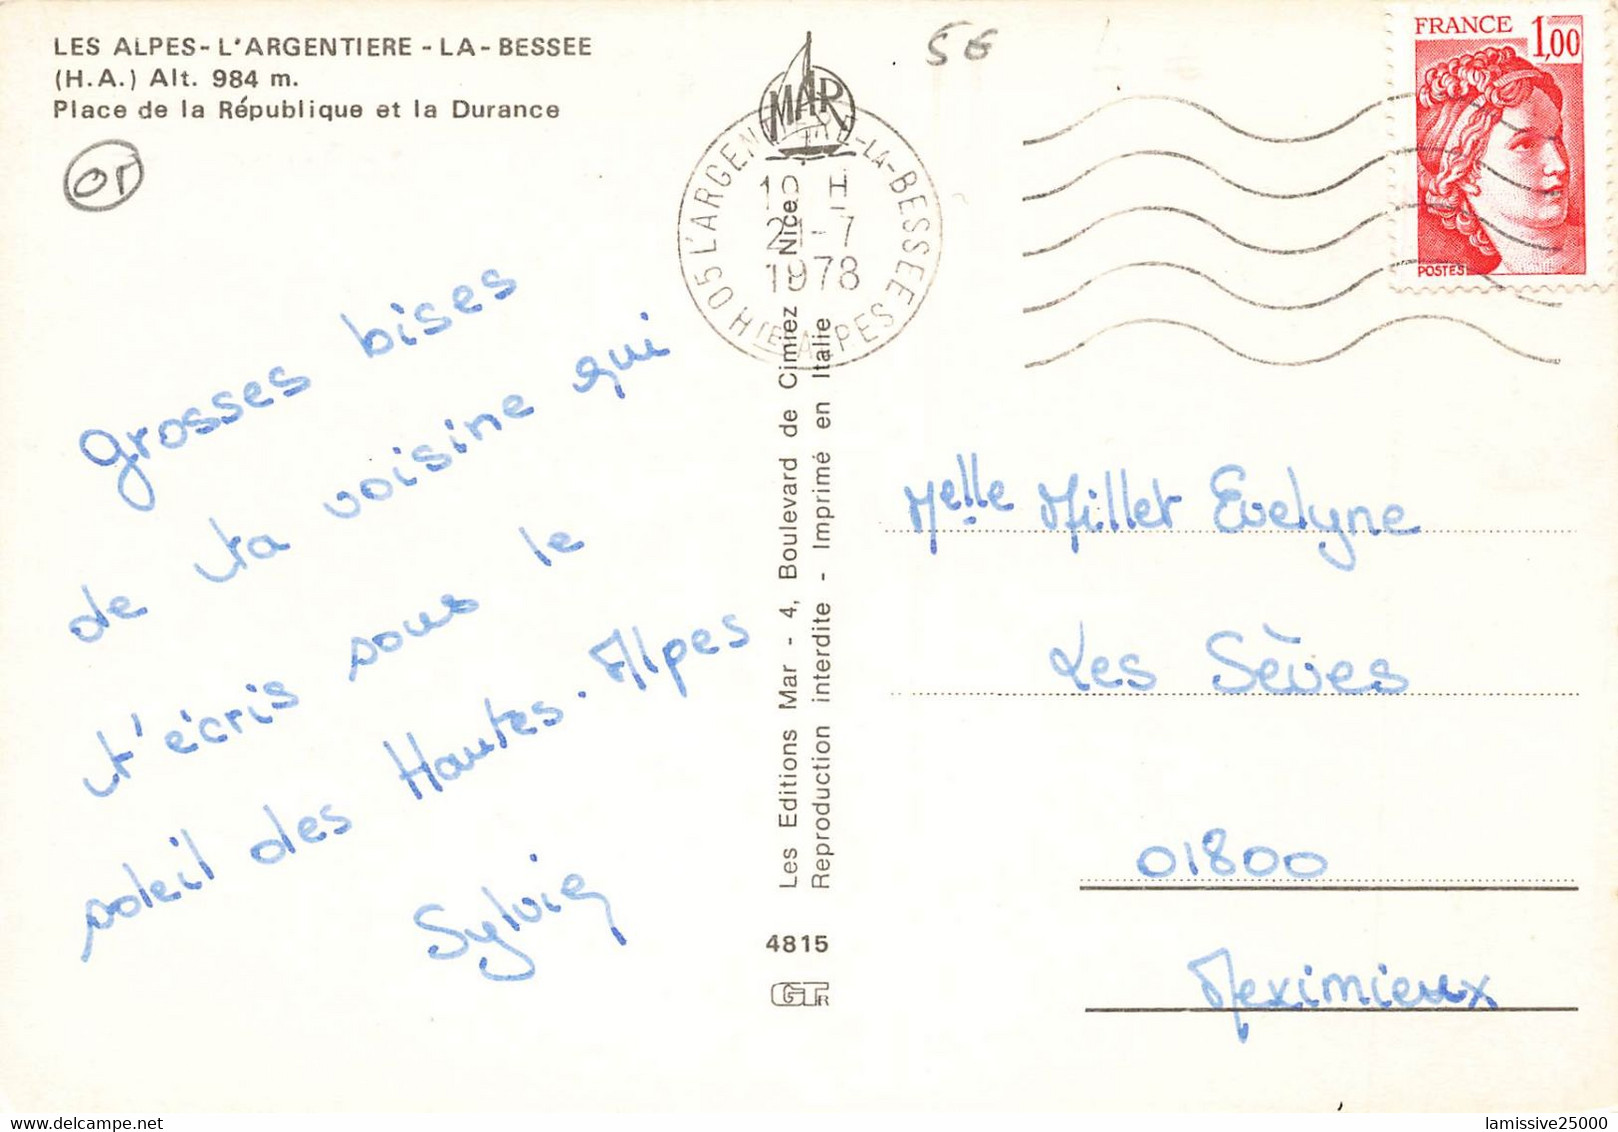 LES ALPES - L'ARGENTIERE - LA - BESSEE
(H.A.) Alt. 984 m.
Place de la République et la Durance
OT
56
MAR
05 L'ARGENTIERE-LA-BESSEE
HTES ALPES
-7
1978
FRANCE 1,00
POSTES
Grosses bises
de ta voisine qui
t'écris sous le
soleil des Hautes-Alpes
Sylvie
Les Editions Mar - 4, Boulevard de Cimiez - Nice
Reproduction interdite - Imprimé en Italie
4815
GTR
Melle Millet Evelyne
Les Sèves
01800
Meximieux
lamissive25000